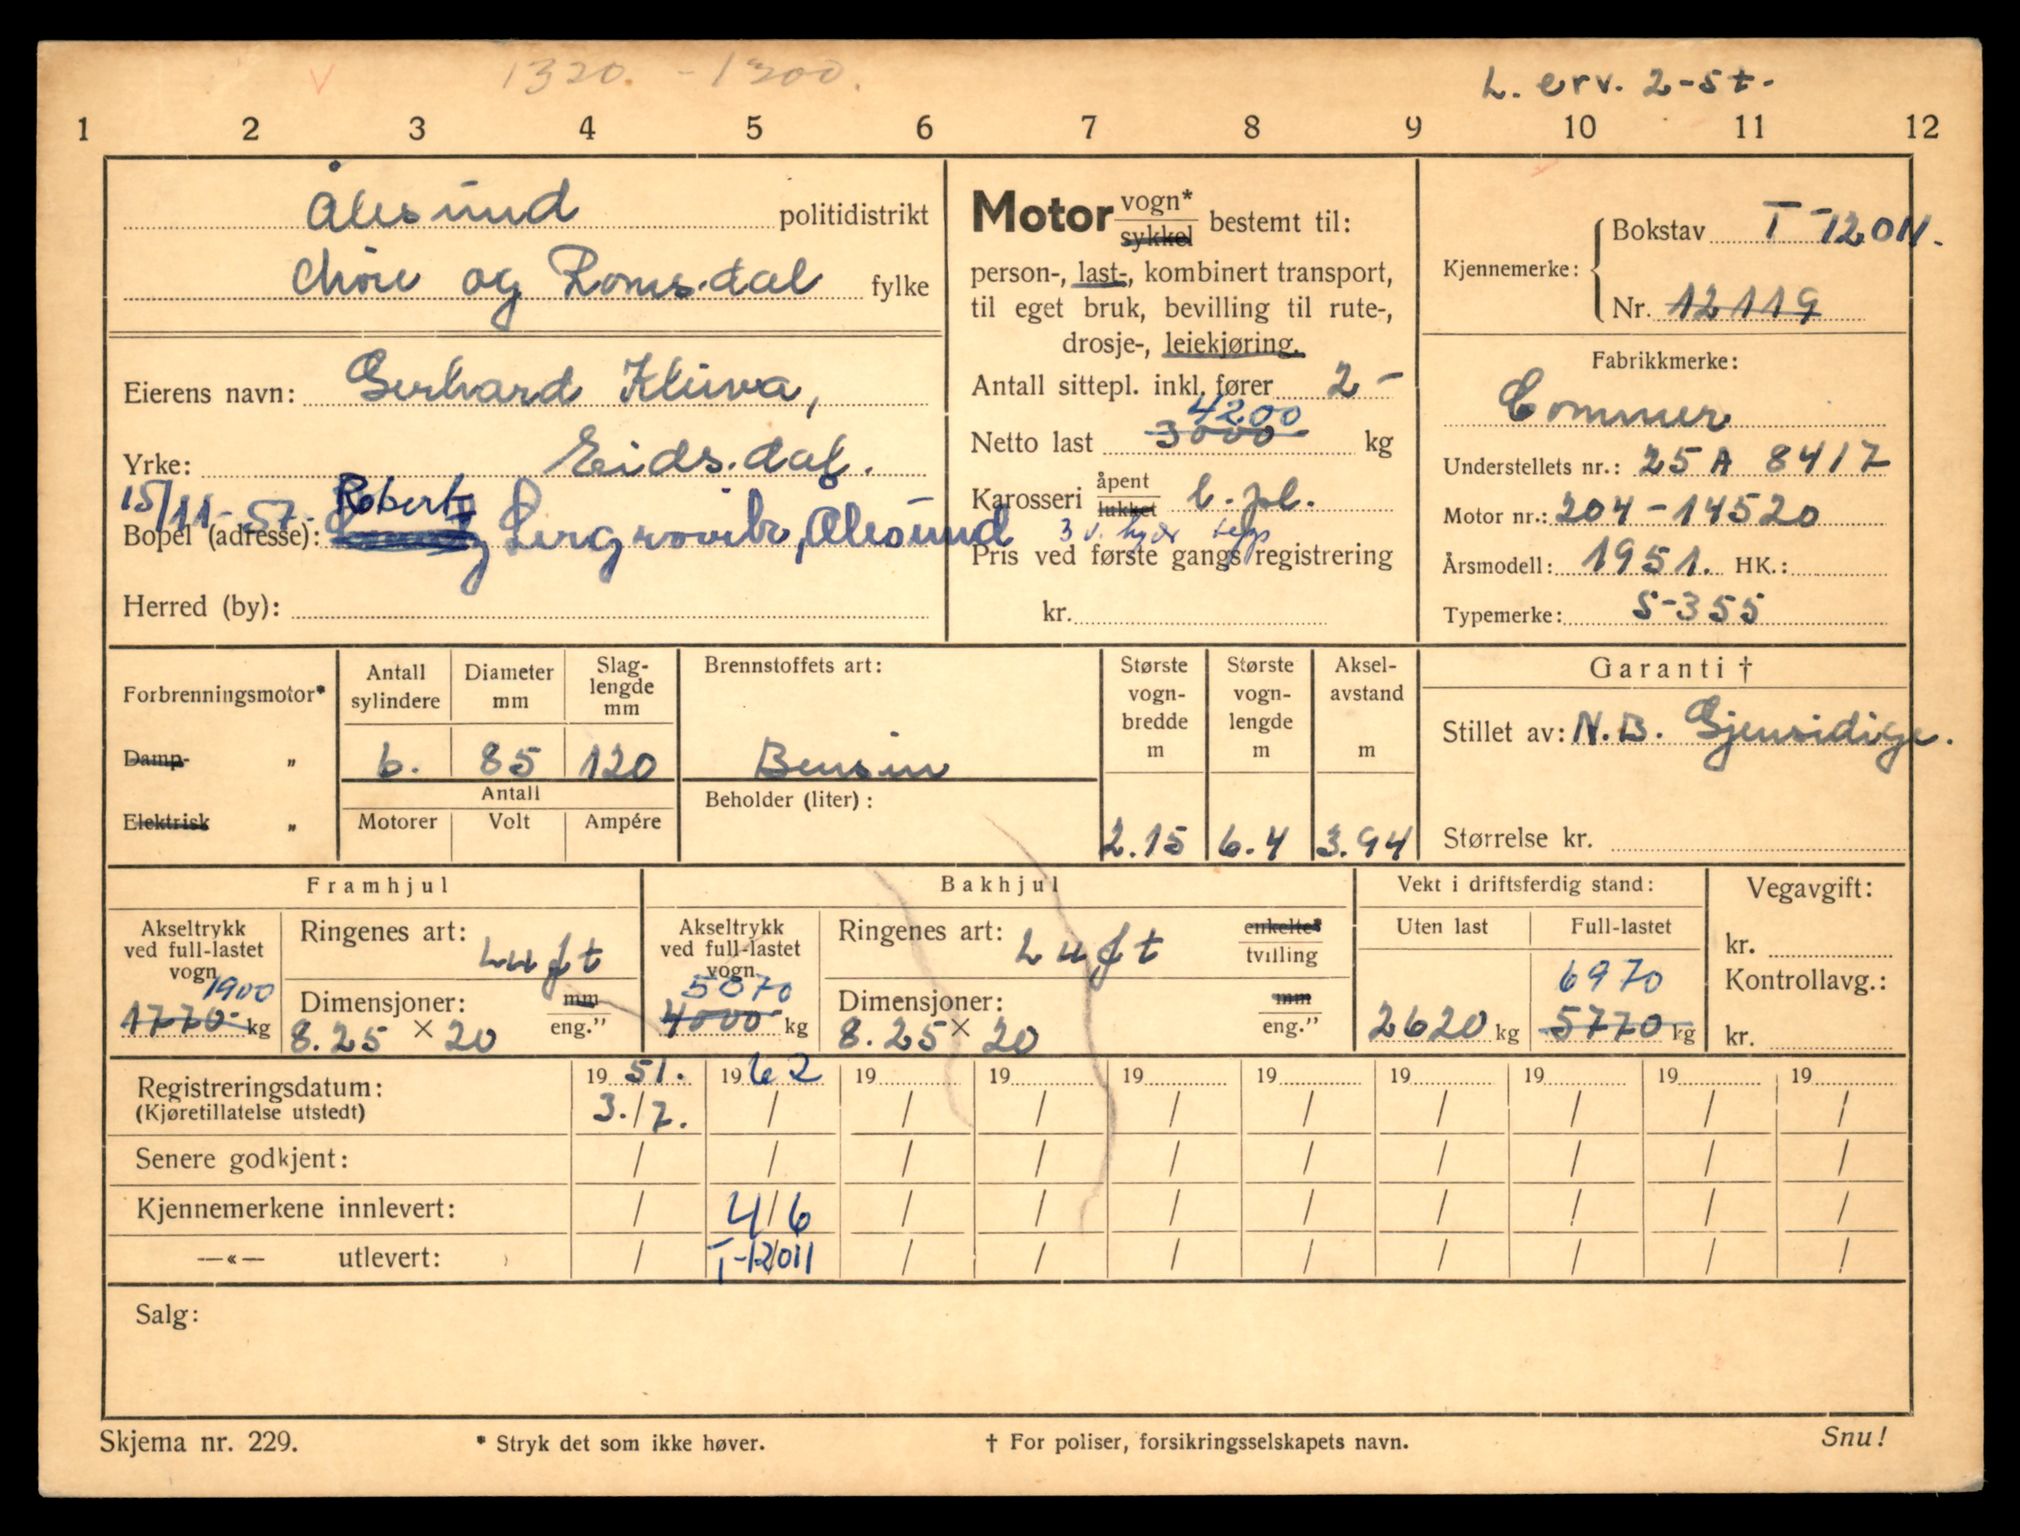 1320. - 1300.
L. erv. 2-5 t-
1 2 3 4 5 6 7 8 9 10 11 12
Ålesund politidistrikt
Møre og Romsdal fylke
Eierens navn: Gerhard Kluva,
Yrke: Eidsdal.
15/11-57. Robert
Bopel (adresse): Ålesund
Herred (by):
Motor vogn* sykkel bestemt til:
person-, last-, kombinert transport,
til eget bruk, bevilling til rute-,
drosje-, leiekjøring.
Antall sittepl. inkl. fører 2-
4200
Netto last 3000 kg
Karosseri åpent lukket l.pl.
3 v.
Pris ved første gangs registrering
kr.
Kjennemerke: Bokstav T-12011.
Nr. 12119
Fabrikkmerke:
Commer
Understellets nr.: 25A 8417
Motor nr.: 204-14520
Årsmodell: 1951. HK.:
Typemerke: S-355
Forbrenningsmotor*
Damp- „
Elektrisk „
Antall sylindere 6.
Diameter mm 85
Slag-lengde mm 120
Antall
Motorer Volt Ampére
Brennstoffets art:
Bensin
Beholder (liter):
Største vogn-bredde m 2.15
Største vogn-lengde m 6.4
Aksel-avstand m 3.94
Garanti †
Stillet av: N.B. Gjensidige.
Størrelse kr.
Framhjul
Akseltrykk ved full-lastet vogn
1900
1770- kg
Ringenes art: Luft
Dimensjoner: mm
8.25 × 20 eng.”
Bakhjul
Akseltrykk ved full-lastet vogn
5070
4000 kg
Ringenes art: Luft enkelte* tvilling
Dimensjoner: mm
8.25 × 20 eng.”
Vekt i driftsferdig stand:
Uten last Full-lastet
6970
2620 kg 5770 kg
Vegavgift:
kr.
Kontrollavg.:
kr.
Registreringsdatum: 19 51. 19 62 19 19 19 19 19 19 19 19
(Kjøretillatelse utstedt) 3./7. / / / / / / / / /
Senere godkjent: / / / / / / / / / /
Kjennemerkene innlevert: / 4/6 / / / / / / / /
—«— utlevert: / T-12011 / / / / / / / /
Salg:
Skjema nr. 229.
* Stryk det som ikke høver.
† For poliser, forsikringsselskapets navn.
Snu!